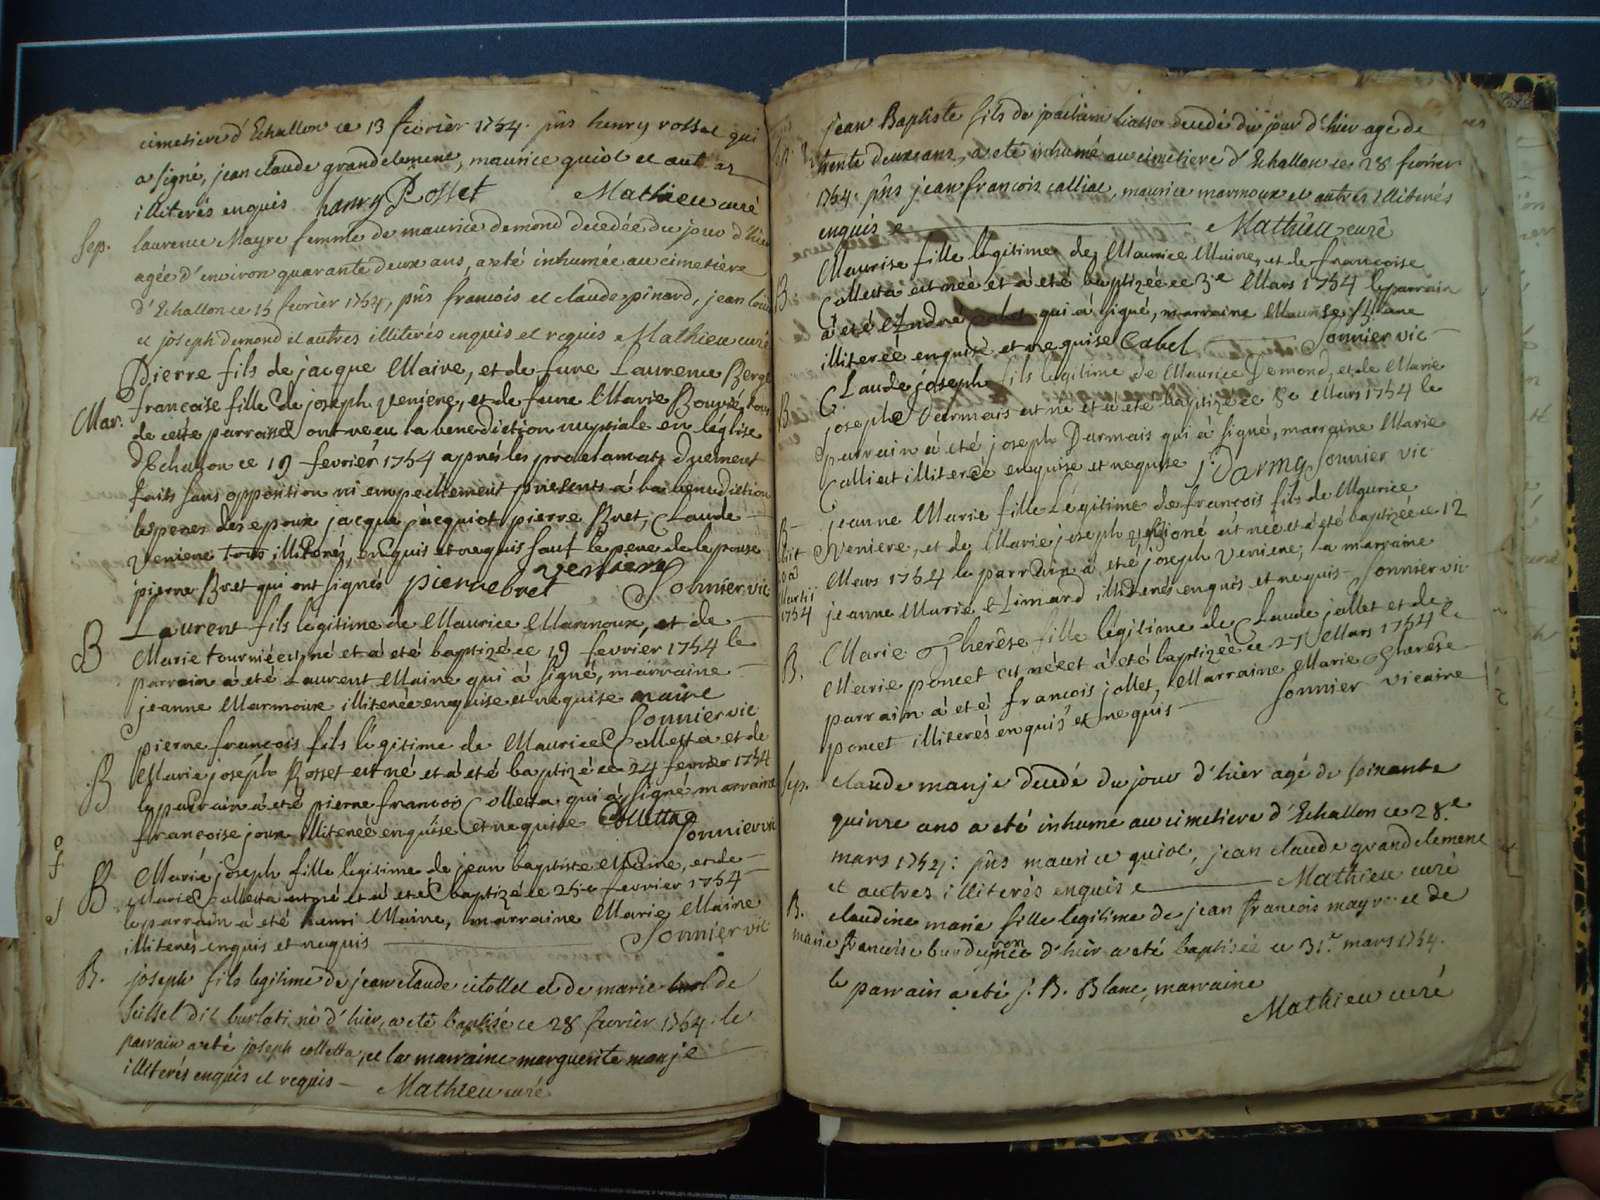 cimetiere d'Echallon ce 13 fevrier 1754. pñs henry rosset qui
a signé, jean claude grandclement, maurice guiot et autres
illiterés enquis henry Rosset Mathieu curé
Sep. laurence Mayre femme de maurice demond decedée du jour d'hier
agée d'environ quarante deux ans, a eté inhumée au cimetiere
d'Echallon ce 15 fevrier 1754, pñs francois et claude pinard, jean louis
et joseph demond et autres illiterés enquis et requis Mathieu curé
Mar. Pierre fils de jacque Maire, et de fune Laurence
francoise fille de joseph veniere, et de fune Marie tous
de cette parroisse ont recu la benediction nuptiale en leglise
d'Echallon ce 19 fevrier 1754 aprés les proclamats duement
faits sans opposition ni empechement presents á la benediction
les peres des epoux jacque jacquiot pierre Bret, Claude
Veniere tous illiterés, enquis et requis sauf le pere de lepouse
pierre Bret qui ont signés pierre bret veniere Sonnier vic
B Laurent fils legitime de Maurice Marmoux, et de
Marie tournié est né et á eté baptizé ce 19 fevrier 1754 le
parrain á eté Laurent Maire qui á signé, marraine
jeanne Marmoux illiterée enquise et requise maire
Sonnier vic
B pierre francois fils legitime de Maurice Colletta et de
Marie joseph Rosset est né et á eté baptizé ce 24 fevrier 1754
le parrain á eté pierre francois Colletta qui á signé marraine
francoise joux illiterée enquise et requise Collettaz
Sonnier vic
B Marie joseph fille legitime de jean baptiste Maire, et de
Marie Colletta est né et á eté baptizé ce 25e fevrier 1754
le parrain á eté henri Maire, marraine Marie Maire
illiterés enquis et requis Sonnier vic
B. joseph fils legitime de jean claude et de marie de
Seissel dit burlati né d'hier, a eté baptisé ce 28 fevrier 1754: le
parrain a eté joseph colletta, et la marraine marguerite manjé
illiterés enquis et requis Mathieu curé
jean Baptiste fils de joachim decedé du jour d'hier agé de
trente deux ans, a eté inhumé au cimetiere d'Echallon ce 28 fevrier
1754. pñs jean francois calliat, maurice marmoux et autres illiterés
enquis Mathieu curé
B. Maurise fille legitime de Maurice Maire, et de francoise
Colletta est née et á eté baptizée ce 3e Mars 1754 le parrain
á eté Andre qui á signé, marraine Maurise Maire
illiterée enquise et requise Cabet Sonnier vic
B. Claude joseph fils legitime de Maurice Demond, et de Marie
josephe Darmais est né et á eté baptizé ce 8e Mars 1754 le
parrain á eté joseph Darmais qui á signé, marraine Marie
Calliat illiterée enquise et requise j. Darma Sonnier vic
B jeanne Marie fille Legitime de francois fils de Maurice
Veniere, et de Marie joseph est née et á eté baptizée ce 12
Mars 1754 le parrain á eté joseph Veniere, la marraine
Martii
1754 jeanne Marie illiterés enquis et requis Sonnier vic
B. Marie Therêse fille légitime de Claude jallet et de
Marie poncet est née et á eté baptizée ce 27 Mars 1754 le
parrain á eté francois jallet, Marraine Marie Therêse
poncet illiterés enquis et requis Sonnier vicaire
Sep. claude manje decedé du jour d'hier agé de soixante
quinze ans a eté inhumé au cimetiere d'Echallon ce 28e
mars 1754: pñs maurice guiot, jean claude grandclement
et autres illiterés enquis Mathieu curé
B. claudine marie fille legitime de jean francois mayre et de
marie francoise née d'hier a eté baptisée ce 31e mars 1754.
le parrain a eté j. B. Blanc, marraine
Mathieu curé